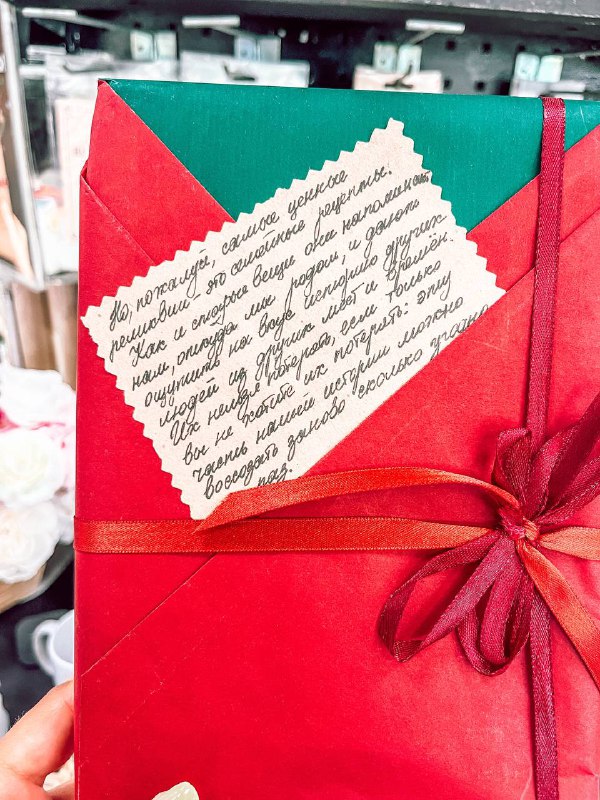 Но, пожалуй, самые ценные
реликвии - это семейные рецепты.
Как и старые вещи они напоминают
нам, откуда мы родом, и дают
ощутить на вкус историю других
людей из других мест и времён.
Их нельзя потерять, если только
вы не хотите их потерять: эту
часть нашей истории можно
воссоздать заново сколько угодно
раз.